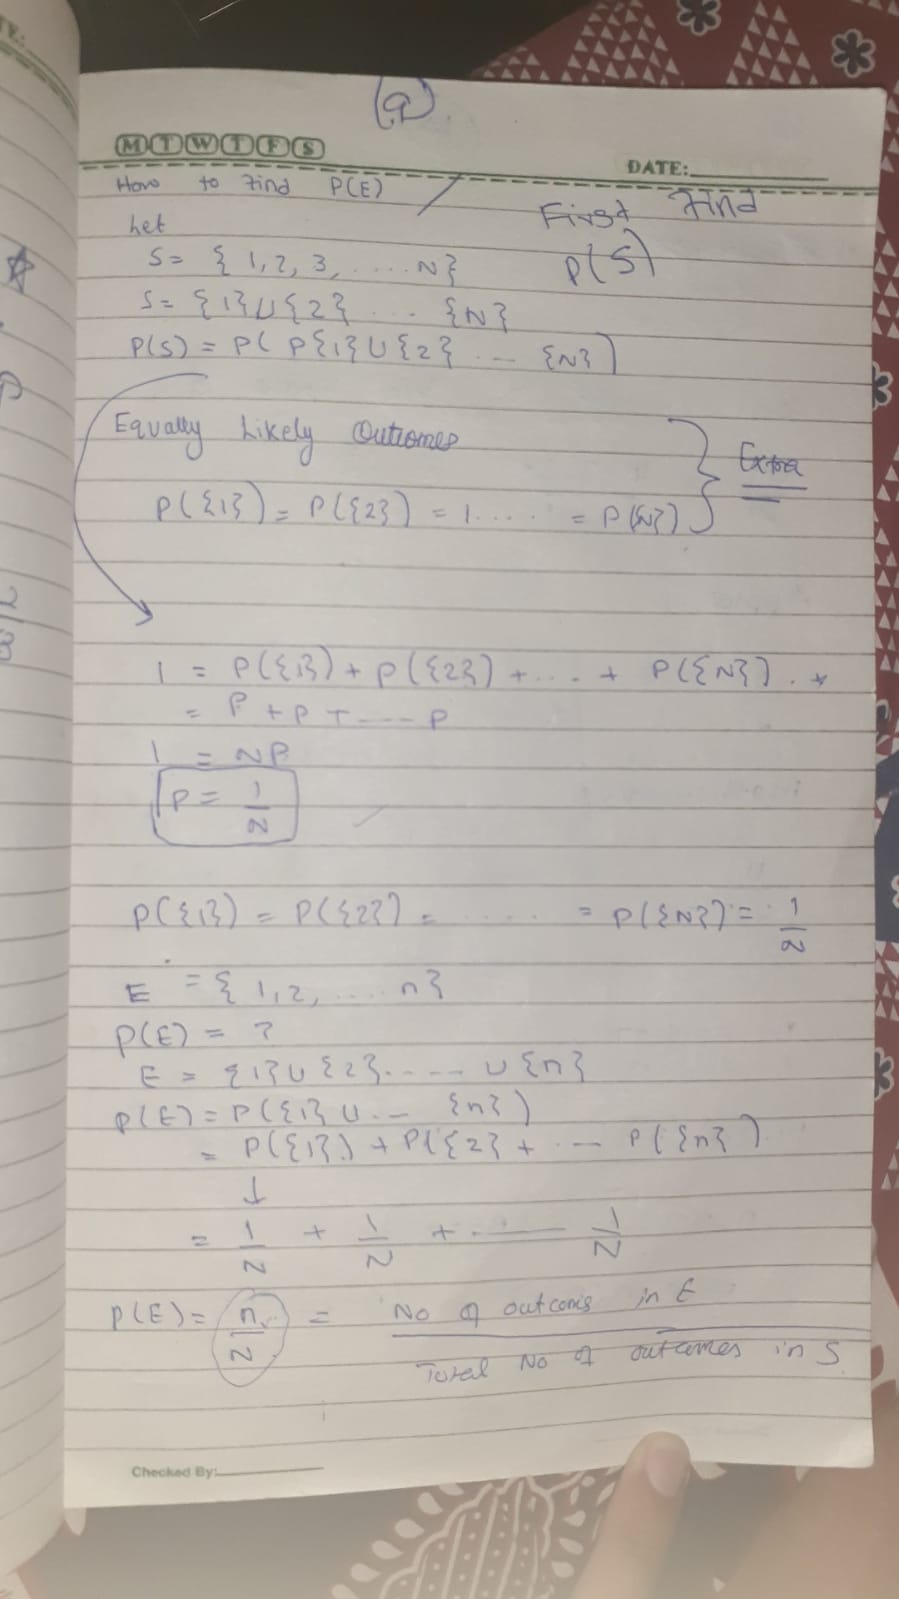 (a)
M T W T F S
DATE:
How to Find P(E) /
First Find
P(S)
Let
S = { 1, 2, 3, .... N}
S = {1} U {2} ... {N}
P(S) = P( P{1} U {2} ... {N})
Equally Likely Outcomes
Extra
P({1}) = P({2}) = 1.... = P({N})
1 = P({1}) + P({2}) + .... + P({N}) . *
= P + P + ---- P
1 = NP
P = 1/N
P({1}) = P({2}) = ..... = P({N}) = 1/N
E = { 1, 2, .... n}
P(E) = ?
E = {1} U {2} ..... U {n}
P(E) = P({1} U .-- {n})
= P({1}) + P({2} + .-- P({n})
↓
= 1/N + 1/N + .---- 1/N
P(E) = n/N = No of outcoms in E
Total No of outcomes in S
Checked By: